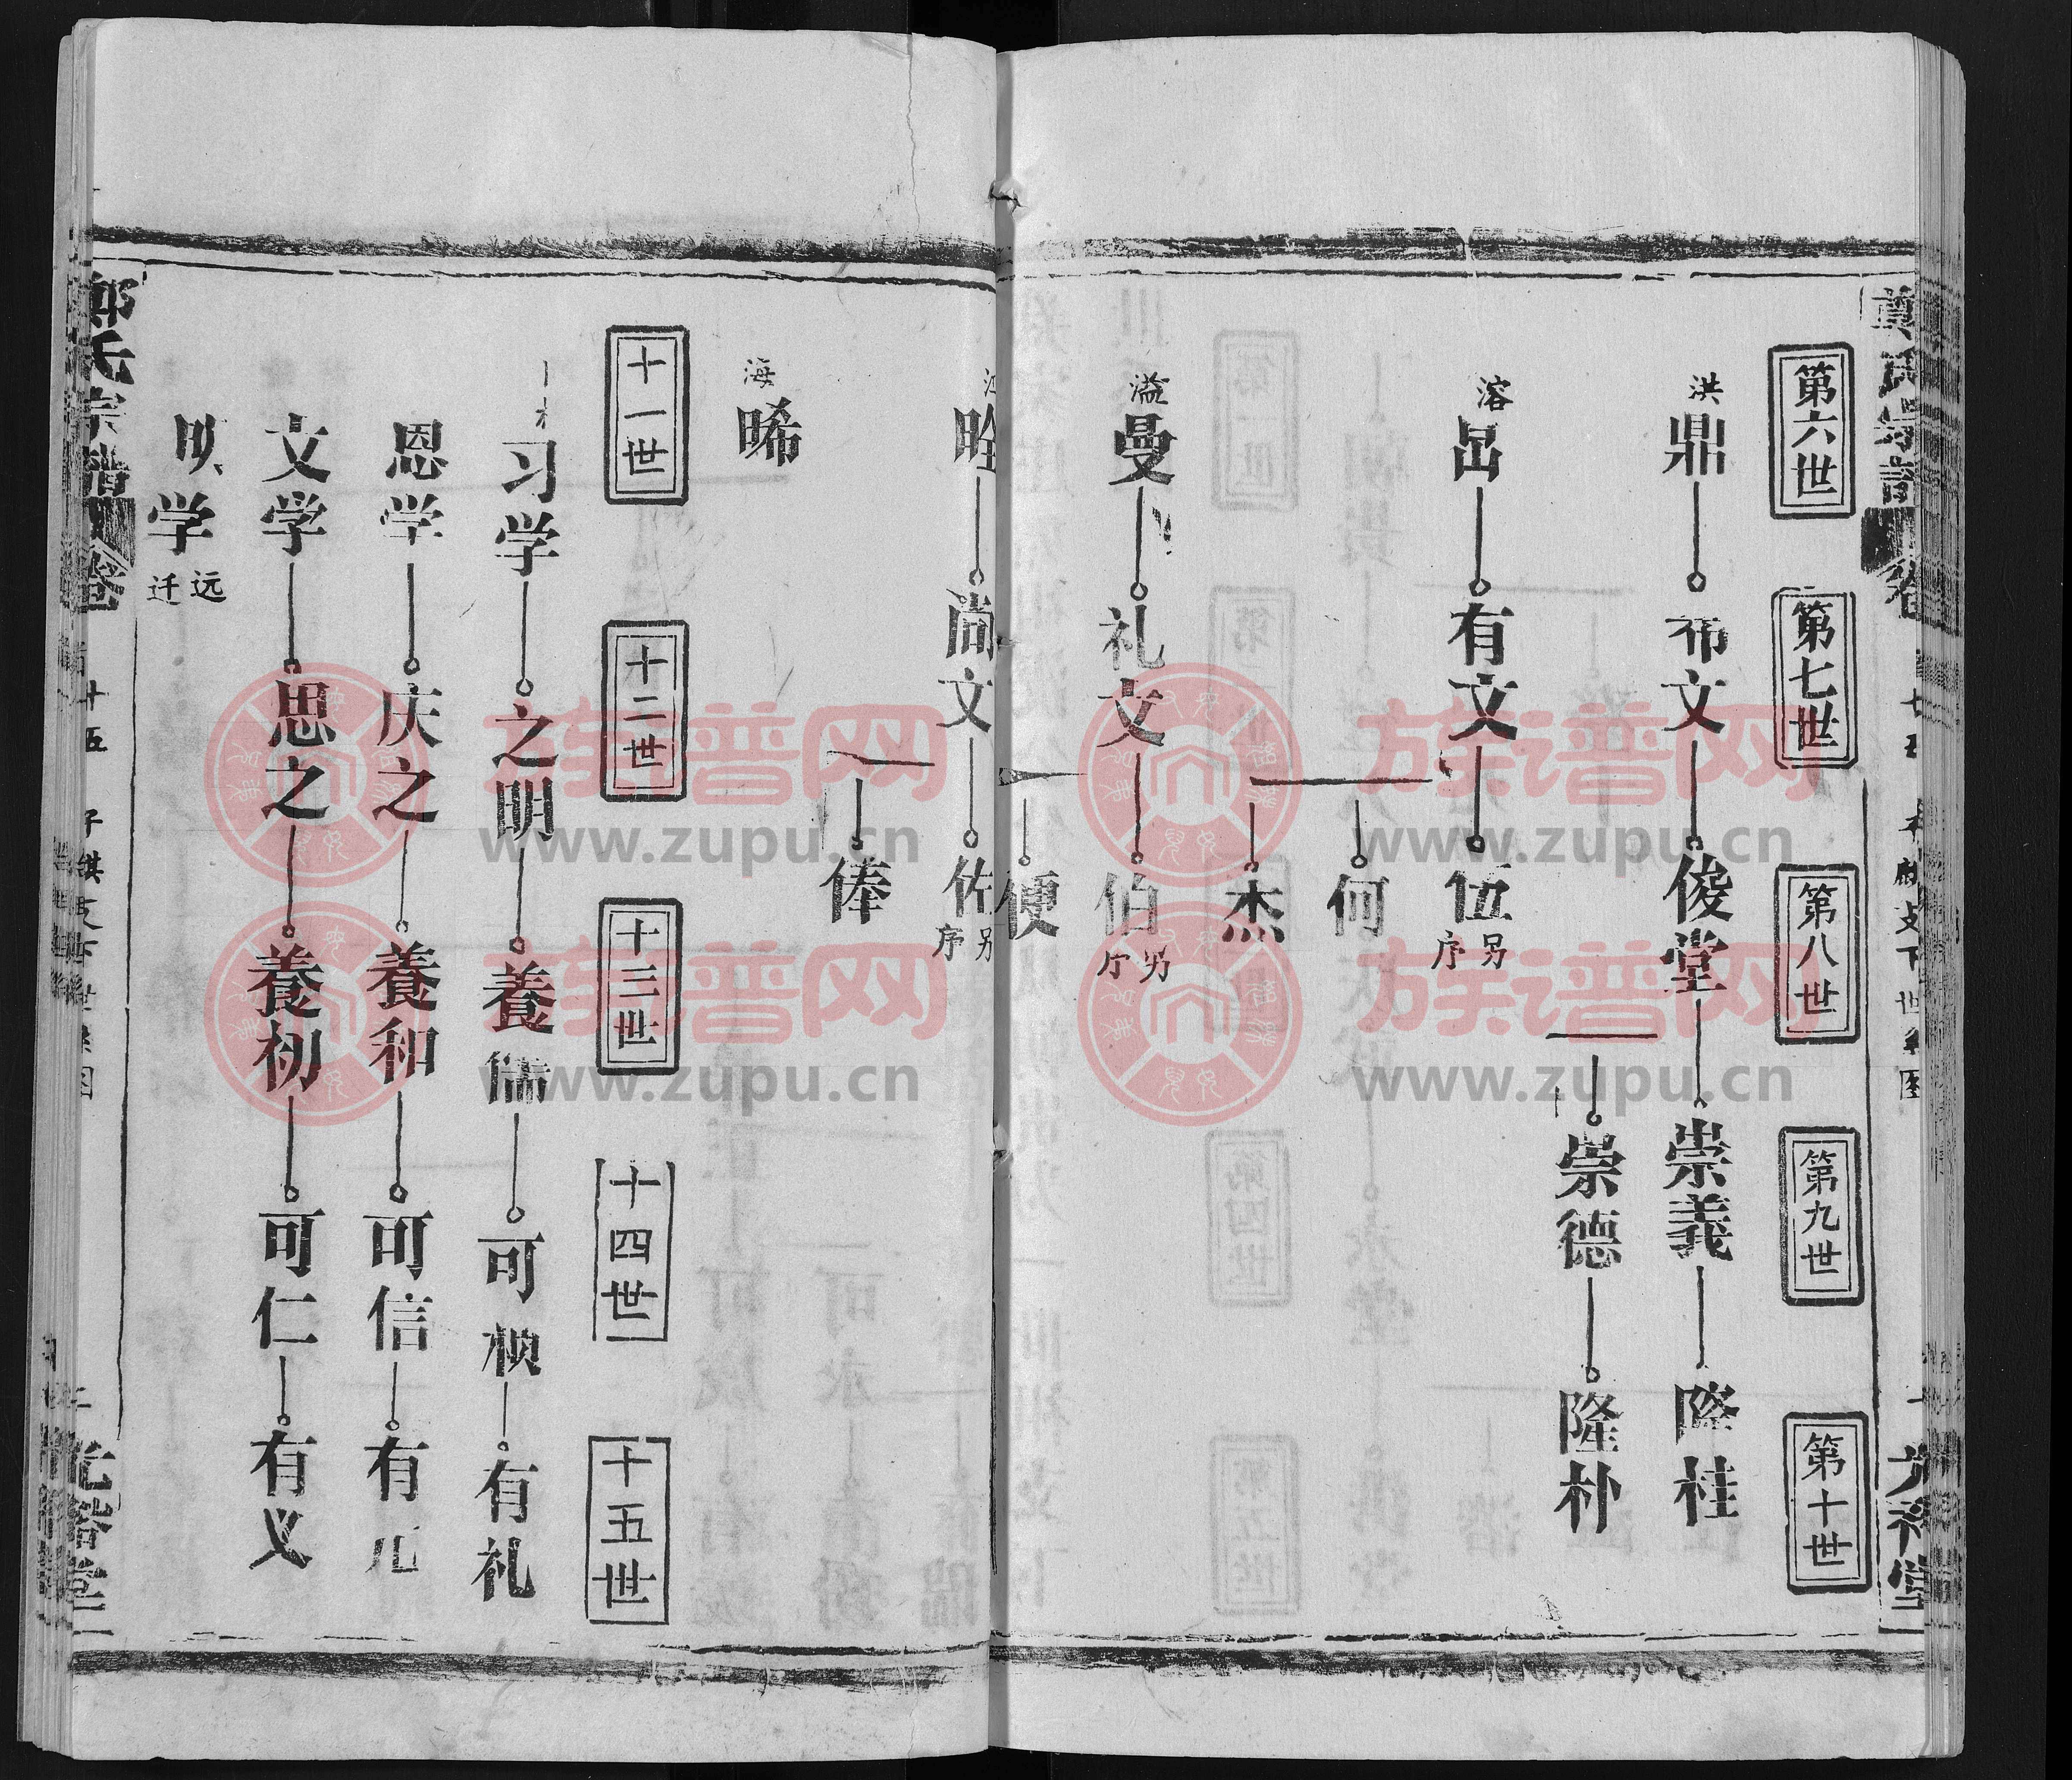 第六世
第七世
第八世
第九世
第十世
洪
鼎
布文
俊堂
崇義
隆桂
崇德
隆朴
溶
有文
伍
另序
何
杰
溢
曼
礼文
伯
另序
便
尚文
佐
另序
俸
海
晞
十一世
十二世
十三世
十四世
十五世
习学
之明
養儒
可桢
有礼
恩学
庆之
養和
可信
有
文学
思之
養初
可仁
有义
学
远迁
氏宗譜
族谱网
www.zupu.cn
族谱网
www.zupu.cn
族谱网
www.zupu.cn
族谱网
www.zupu.cn